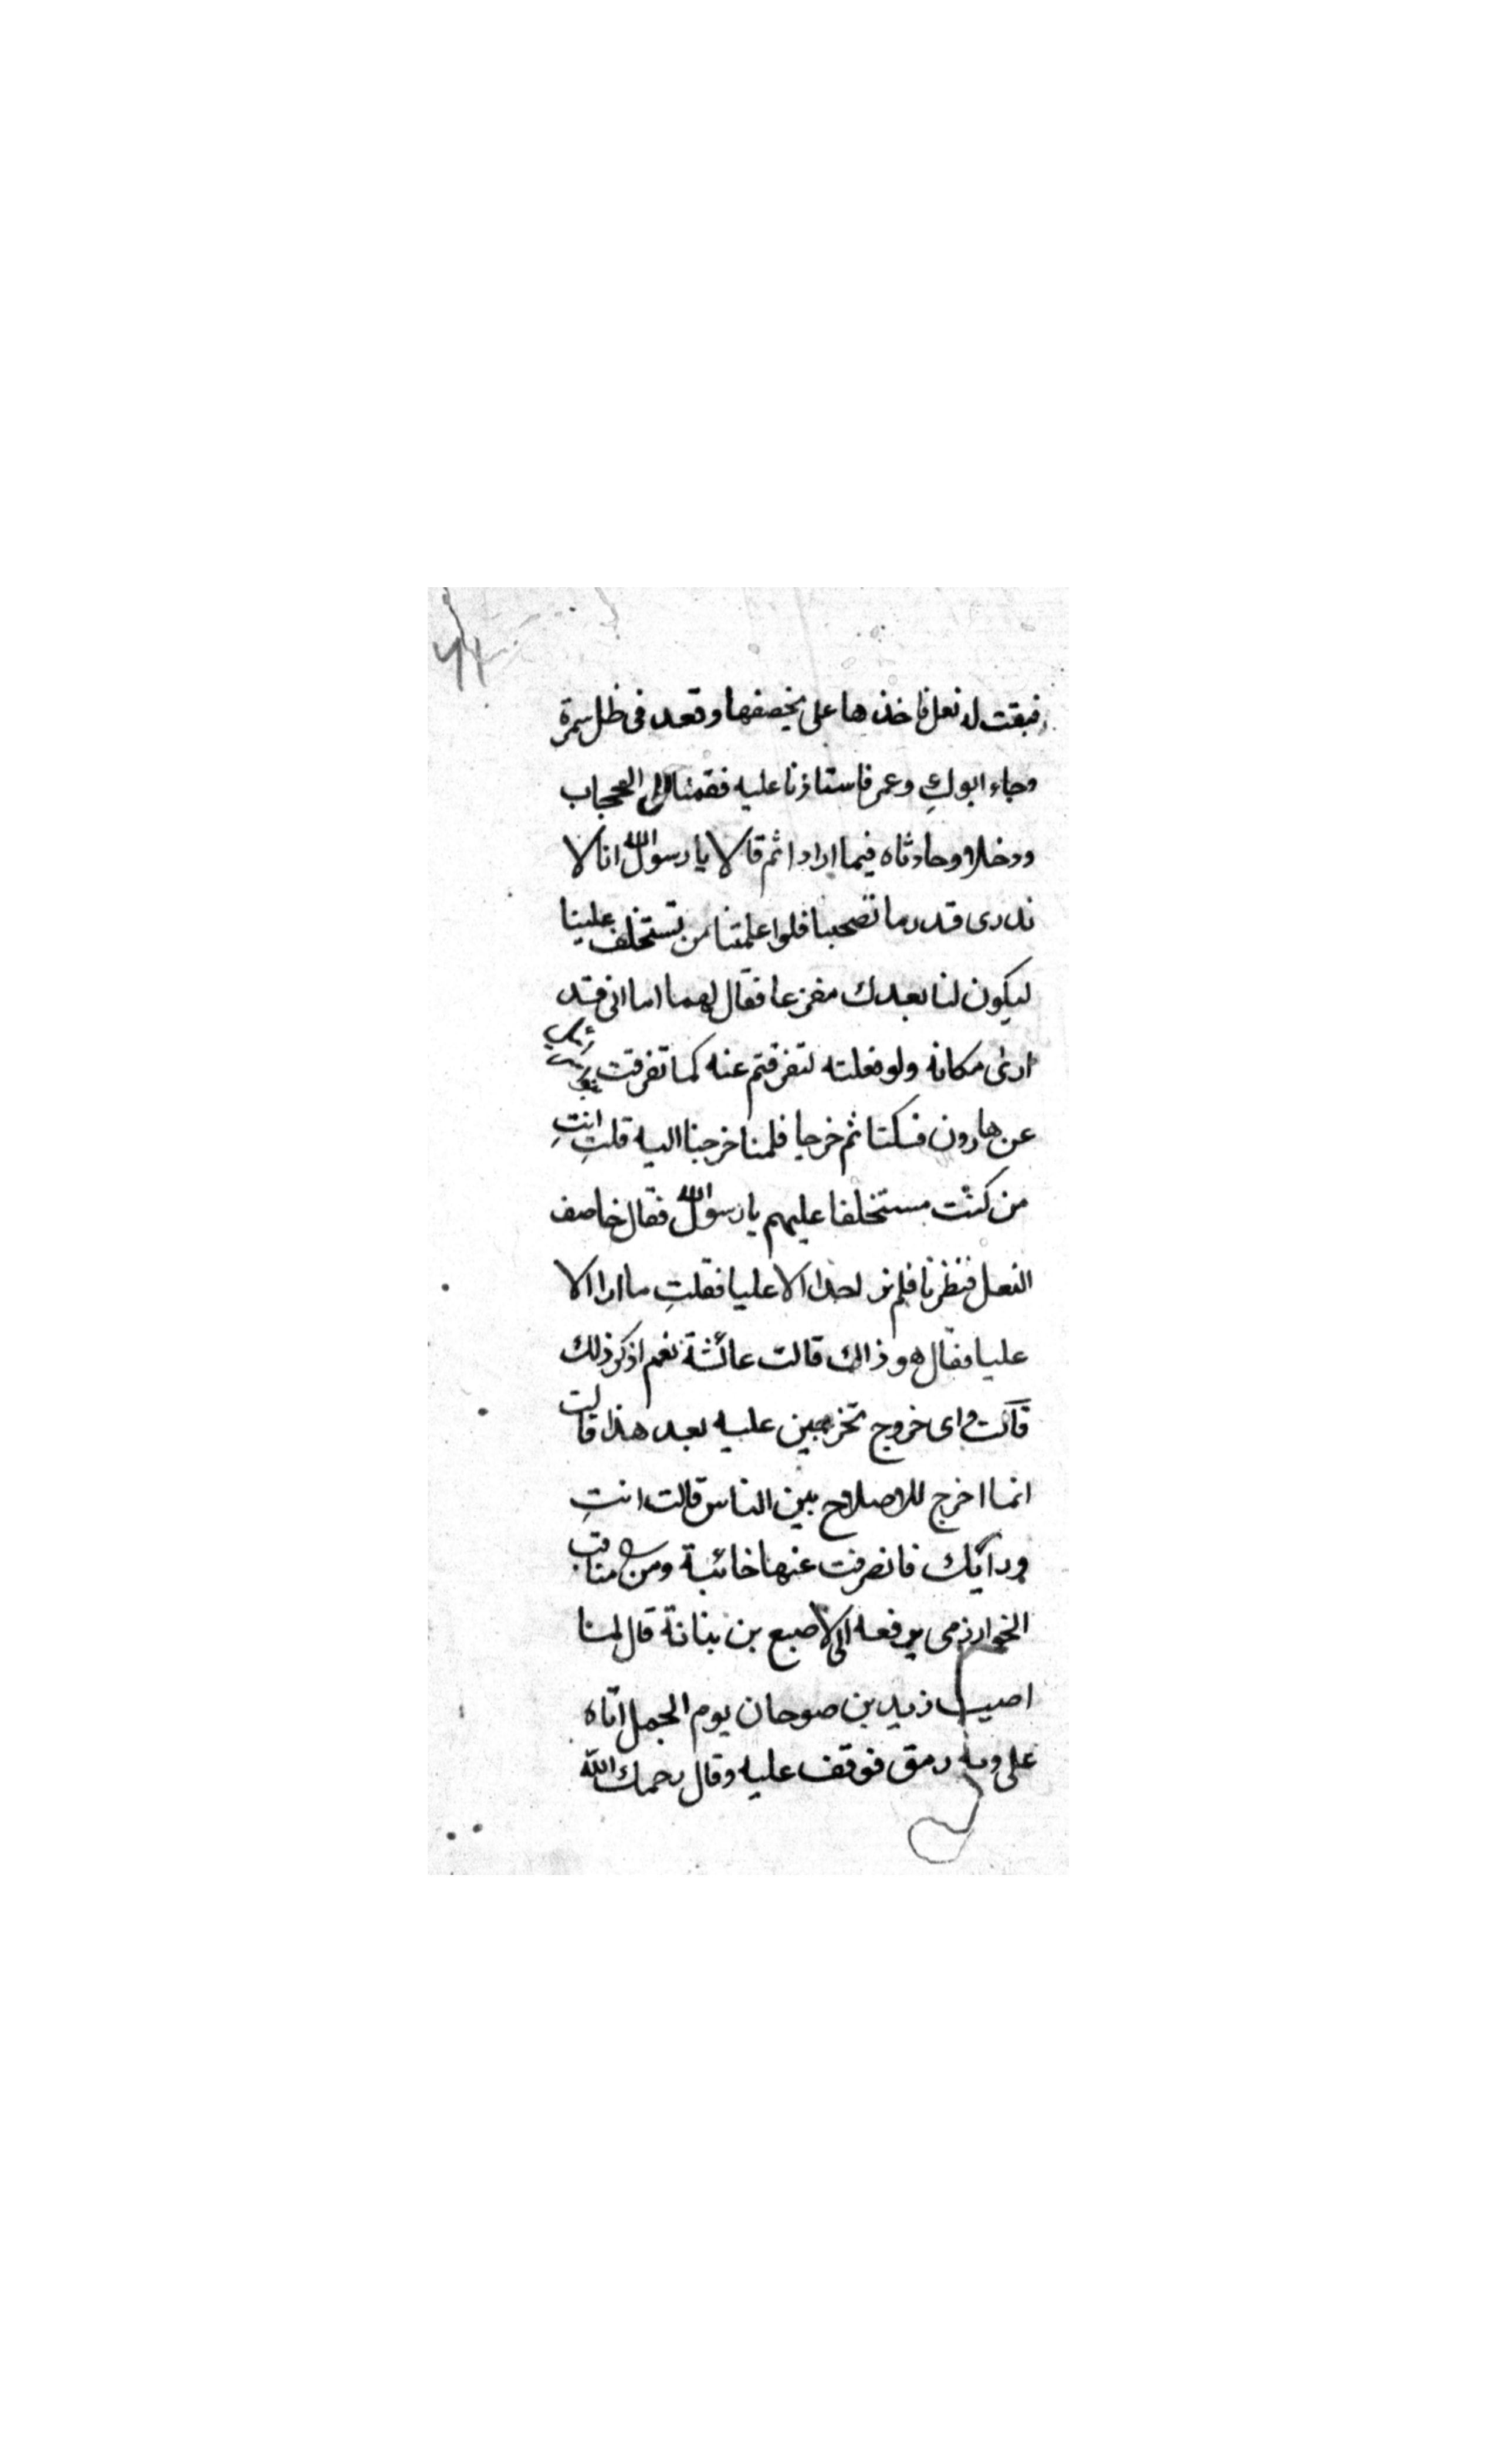 فبقت له نعل فاخذها على يخصفها وقعد فى ظل سمرة
وجاء ابوك وعمر فاستاذنا عليه فقمنا الى الحجاب
ودخلا وحادثاه فيما ارادا ثم قالا يا رسول الله انا لا
ندرى قدر ما تصحبنا فلو اعلمتنا من تستخلف علينا
ليكون لنا بعدك مفزعا فقال لهما اما انى قد
ارى مكانه ولو فعلته لتفرقتم عنه كما تفرقت بنو اسرائيل
عن هارون فسكتا ثم خرجا فلمنا خرجنا اليه قلتِ انتِ
من كنت مستخلفا عليهم يا رسول الله فقال خاصف
النعل فنظرنا فلم نر احدا الا عليا فقلتِ ما ارا الا
عليا فقال هو ذاك قالت عائشة نعم اذكر ذلك
قالت واى خروج تخرجين عليه بعد هذا قالت
انما اخرج للاصلاح بين الناس قالت انتِ
ورأيك فانصرفت عنها خائبة ومن مناقب
الخوارزمى يرفعه الى الاصبع بن بناتة قال لمنا
اصيب زيد بن صوحان يوم الجمل اتاه
على وبه رمق فوقف عليه وقال رحمك الله